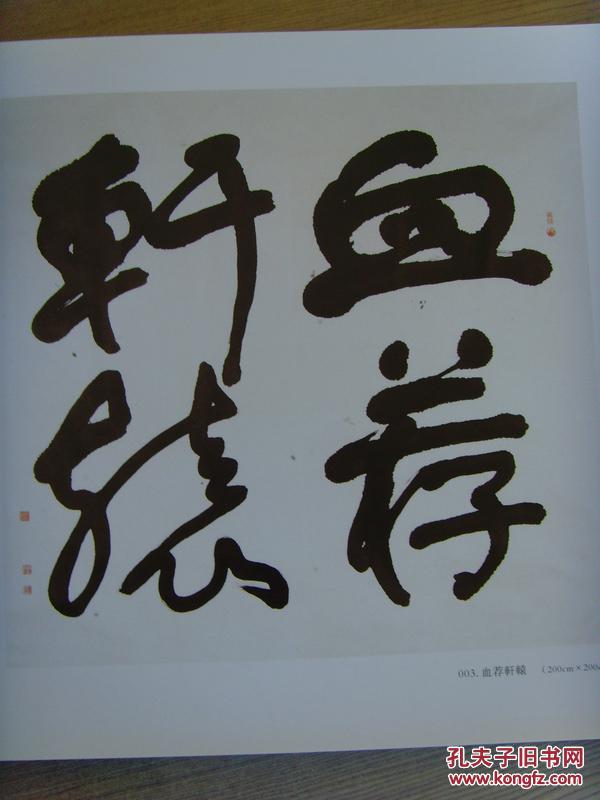 血荐
軒轅
003. 血荐軒轅 (200cm×200c
孔夫子旧书网
www.kongfz.com